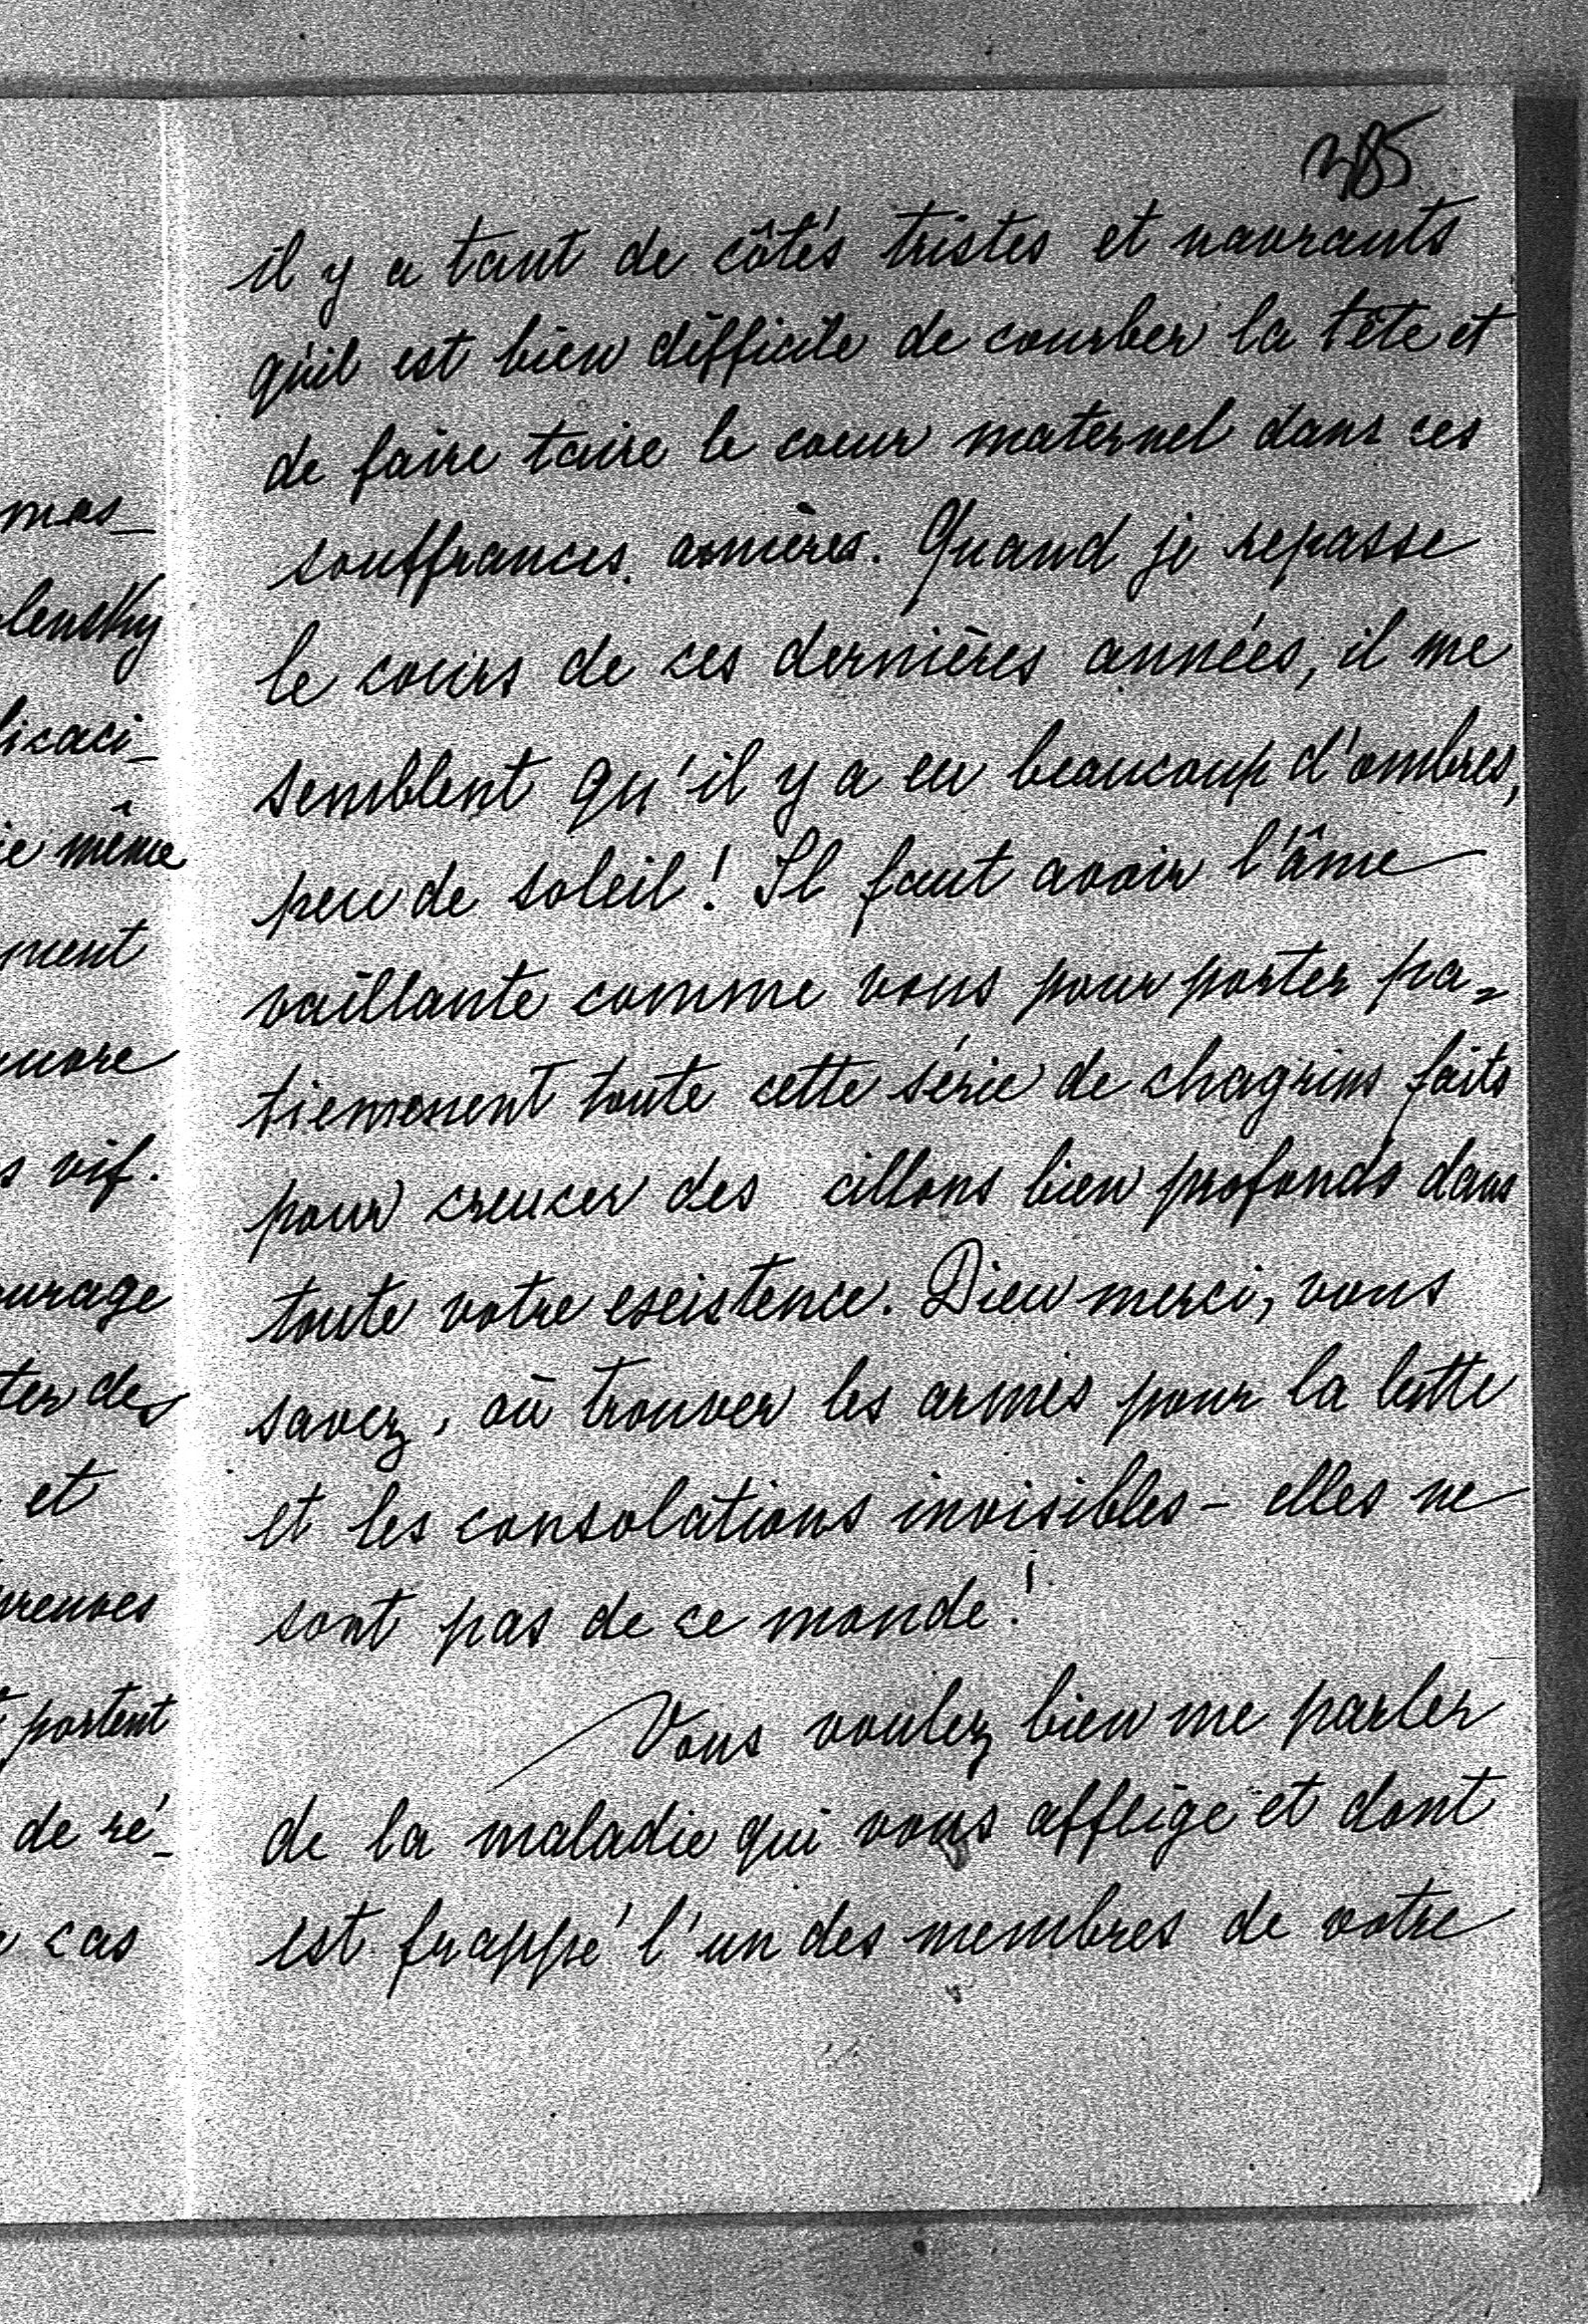 385
il y a tant de côtés tristes et navrants
qu'il est bien difficile de courber la tête et
de faire taire le coeur maternel dans ces
souffrances amères. Quand je repasse
le cours de ces dernières années, il me
semblent qu'il y a eu beaucoup d'ombres,
peu de soleil! Il faut avoir l'âme
vaillante comme vous pour porter pa-
tiemement toute cette série de chagrins faits
pour creucer des cillons bien profonds dans
toute votre exeistence. Dieu merci, vous
savez, où trouver les armes pour la lutte
et les consolations invisibles - elles ne
sont pas de ce monde!
Vous voulez bien me parler
de la maladie qui vous afflige et dont
est frappé l'un des membres de votre
mos_
lensky
licaci_
ie même
ment
s vif.
ourage
ter des
et
reuves
portent
de ré_
cas